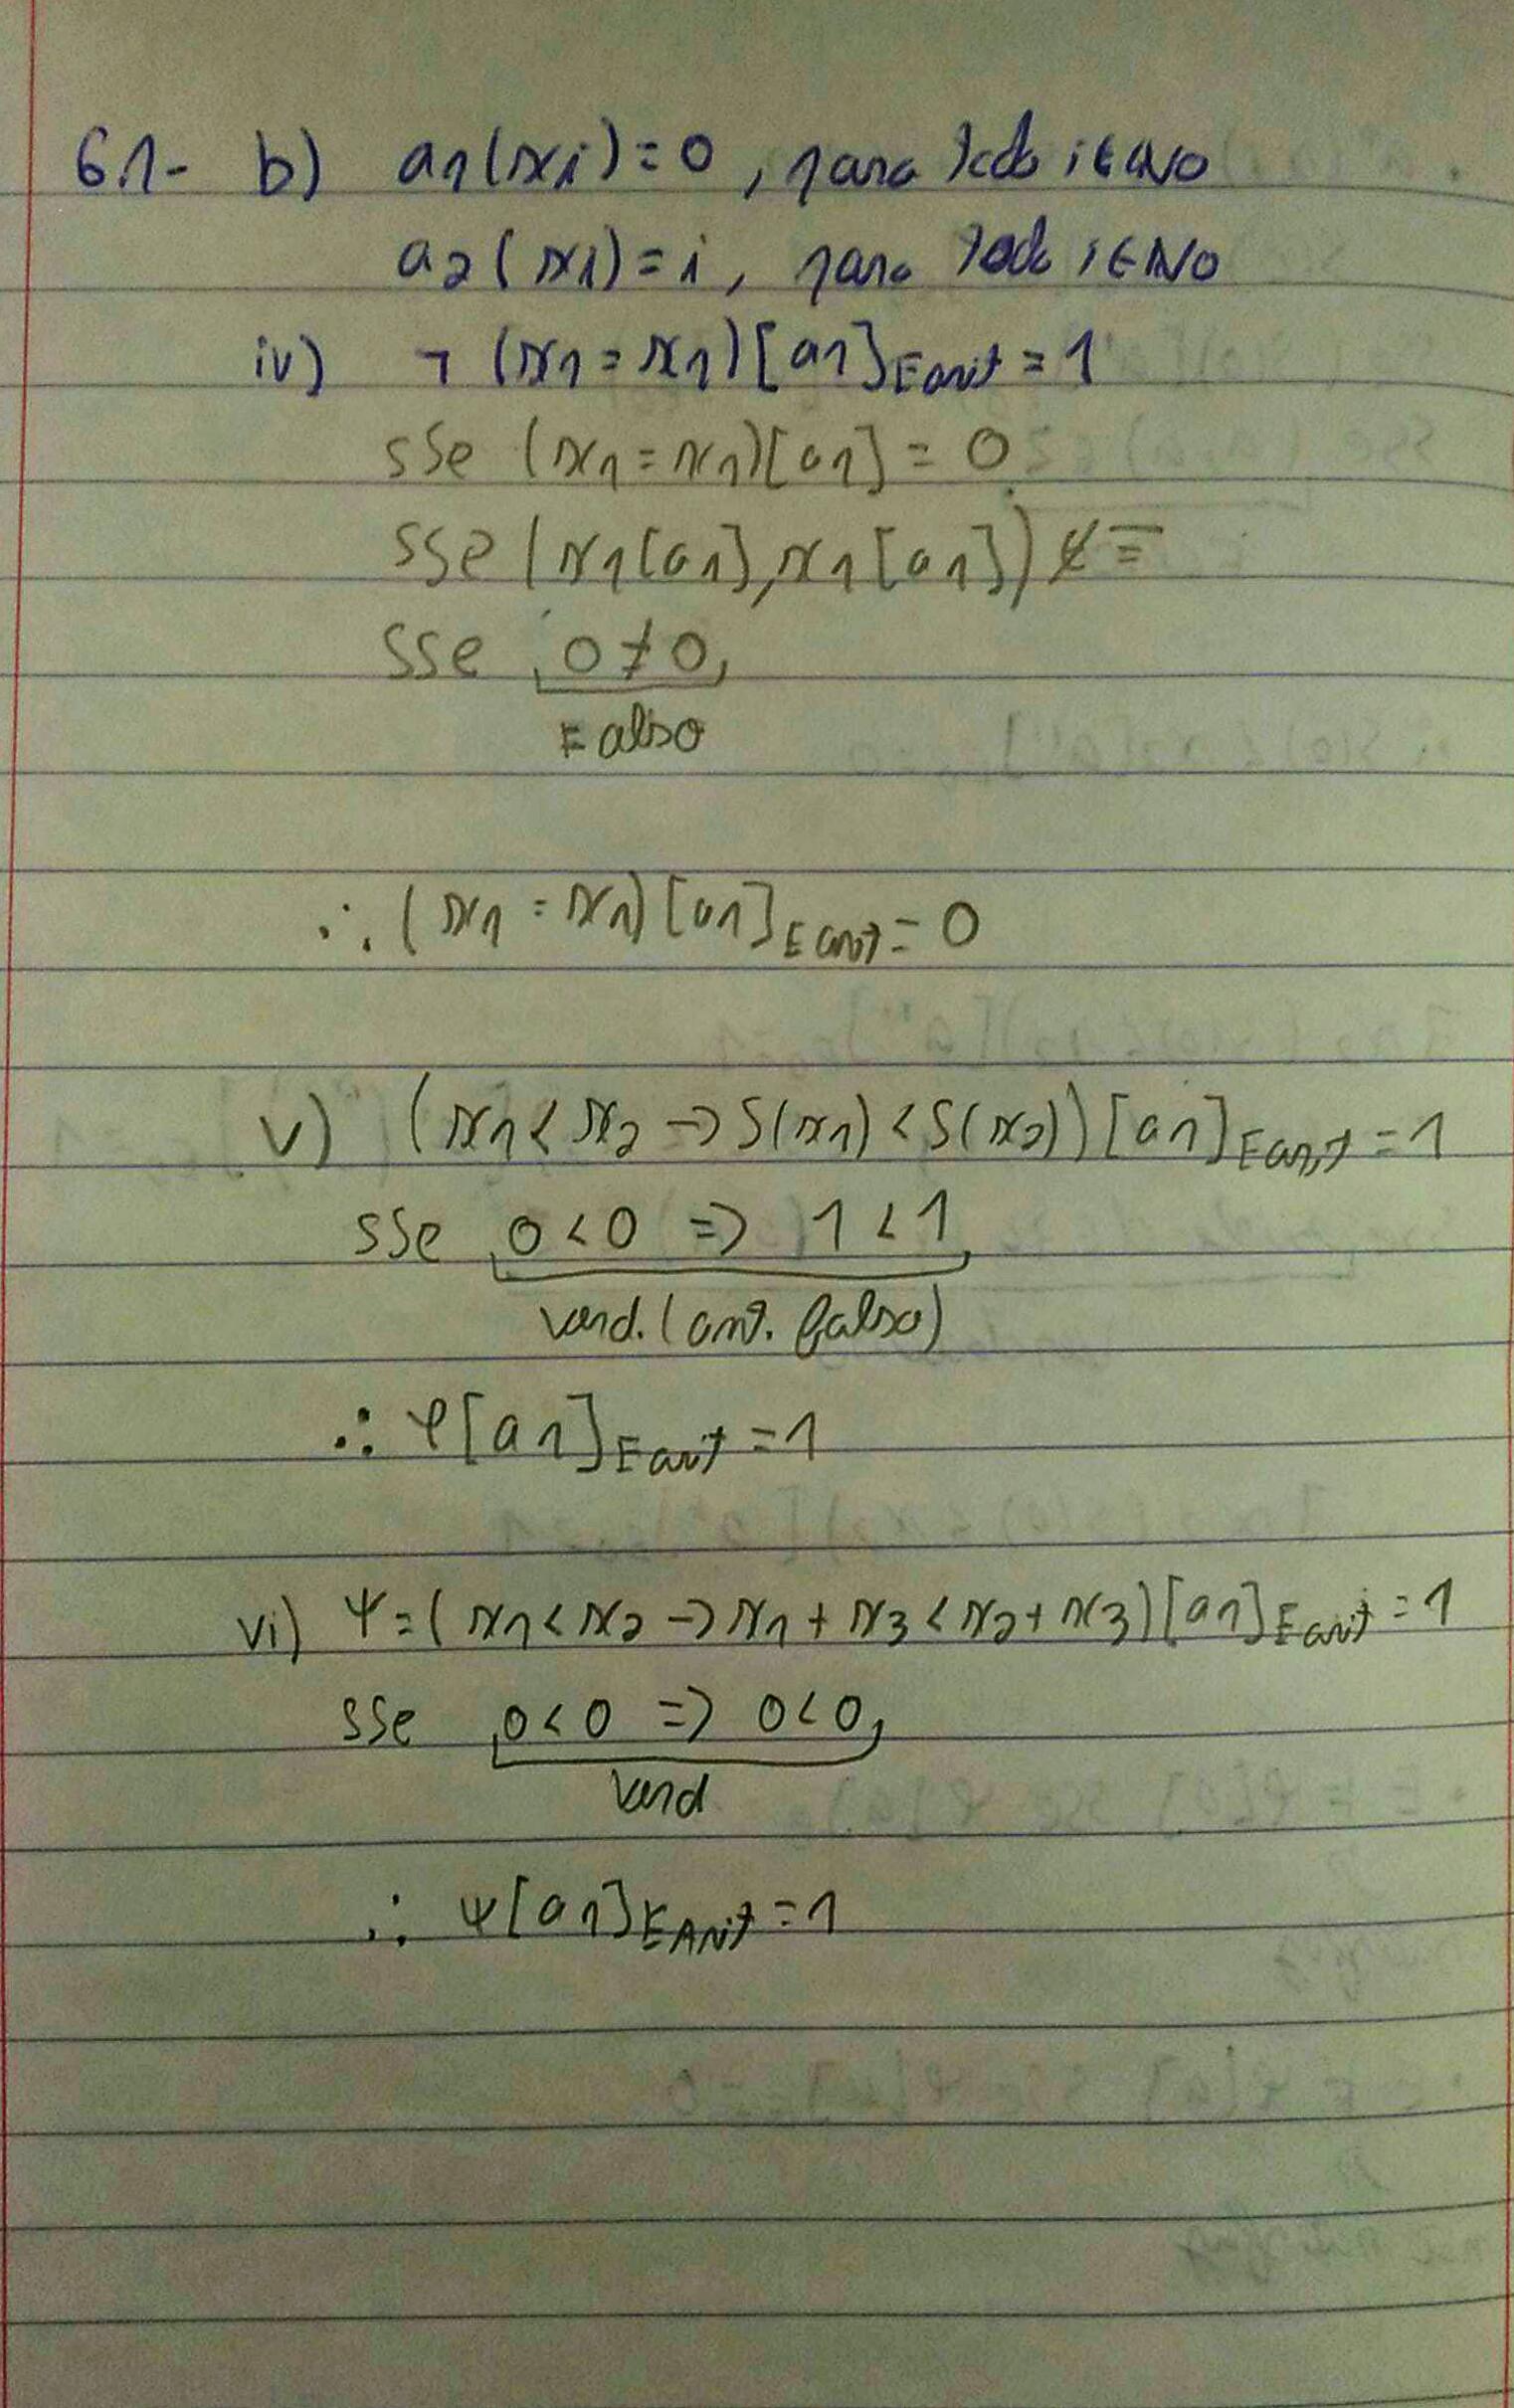 6.1- b) a1(xi)=0, para todo i∈N0
a2(xi)=i, para todo i∈N0
iv) ¬(x1=x1)[a1]Earit=1
sse (x1=x1)[a1]=0
sse (x1[a1],x1[a1])∉=
sse 0≠0
Falso
∴ (x1=x1)[a1]Earit=0
v) (x1<x2→S(x1)<S(x2))[a1]Earit=1
sse 0<0 => 1<1
verd. (ant. falso)
∴ φ[a1]Earit=1
vi) Ψ=(x1<x2→x1+x3<x2+x3)[a1]Earit=1
sse 0<0 => 0<0
verd
∴ ψ[a1]EArit=1